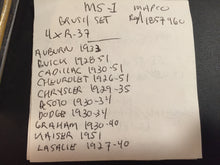 MS-I MAPCO
BRUSH SET Rep/1857960
4xR-37
AUBURN 1933
BUICK 1928-51
CADILLAC 1930-51
CHEVROLET 1926-51
CHRYSLER 1929-35
DESOTO 1930-34
DODGE 1930-34
GRAHAM 1930-40
KAISER 1951
LASALLE 1927-40